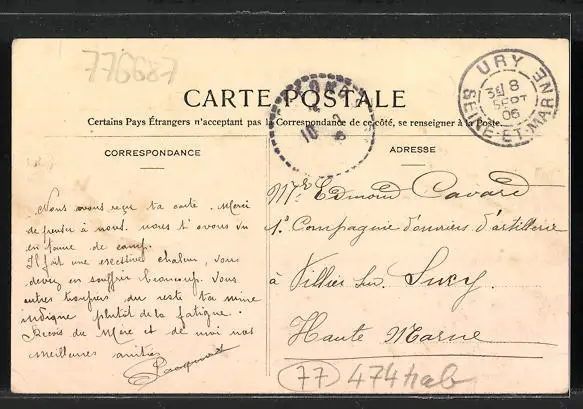 776687
CARTE POSTALE
Certains Pays Étrangers n'acceptant pas la Correspondance de ce côté, se renseigner à la Poste.
URY
3E 8
SEPT
06
SEINE-ET-MARNE
10
CORRESPONDANCE
Nous avons reçu ta carte. Merci
de penser à nous. nous t'avons vu
en tenue de camp.
Il fait une excessive chaleur, vous
devez en souffrir beaucoup. Vous
autres troupiers du reste ta mine
indique plutôt de la fatigue.
Reçois du Mère et de moi nos
meilleures amitiés
ADRESSE
Mr Edmond Cavard
1e Compagnie d'ouvriers d'artillerie
à Villier sur Suey.
Haute Marne
77 474